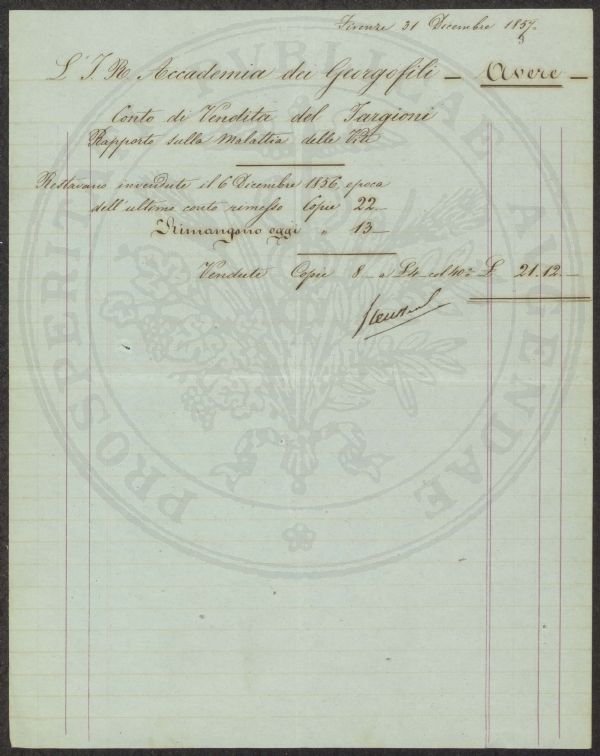 Firenze 31 Decembre 1857.
L'I. R. Accademia dei Georgofili — Avere —
Conto di Vendita del Targioni
Rapporto sulla Malattia delle Viti
Restavano invendute il 6 Decembre 1856, epoca
dell'ultimo conto rimesso Copie 22 —
Rimangono oggi " 13 —
Vendute Copie 8 — a £ 4 £ 21.12. —
PROSPERITATI PUBLICAE AUGENDAE